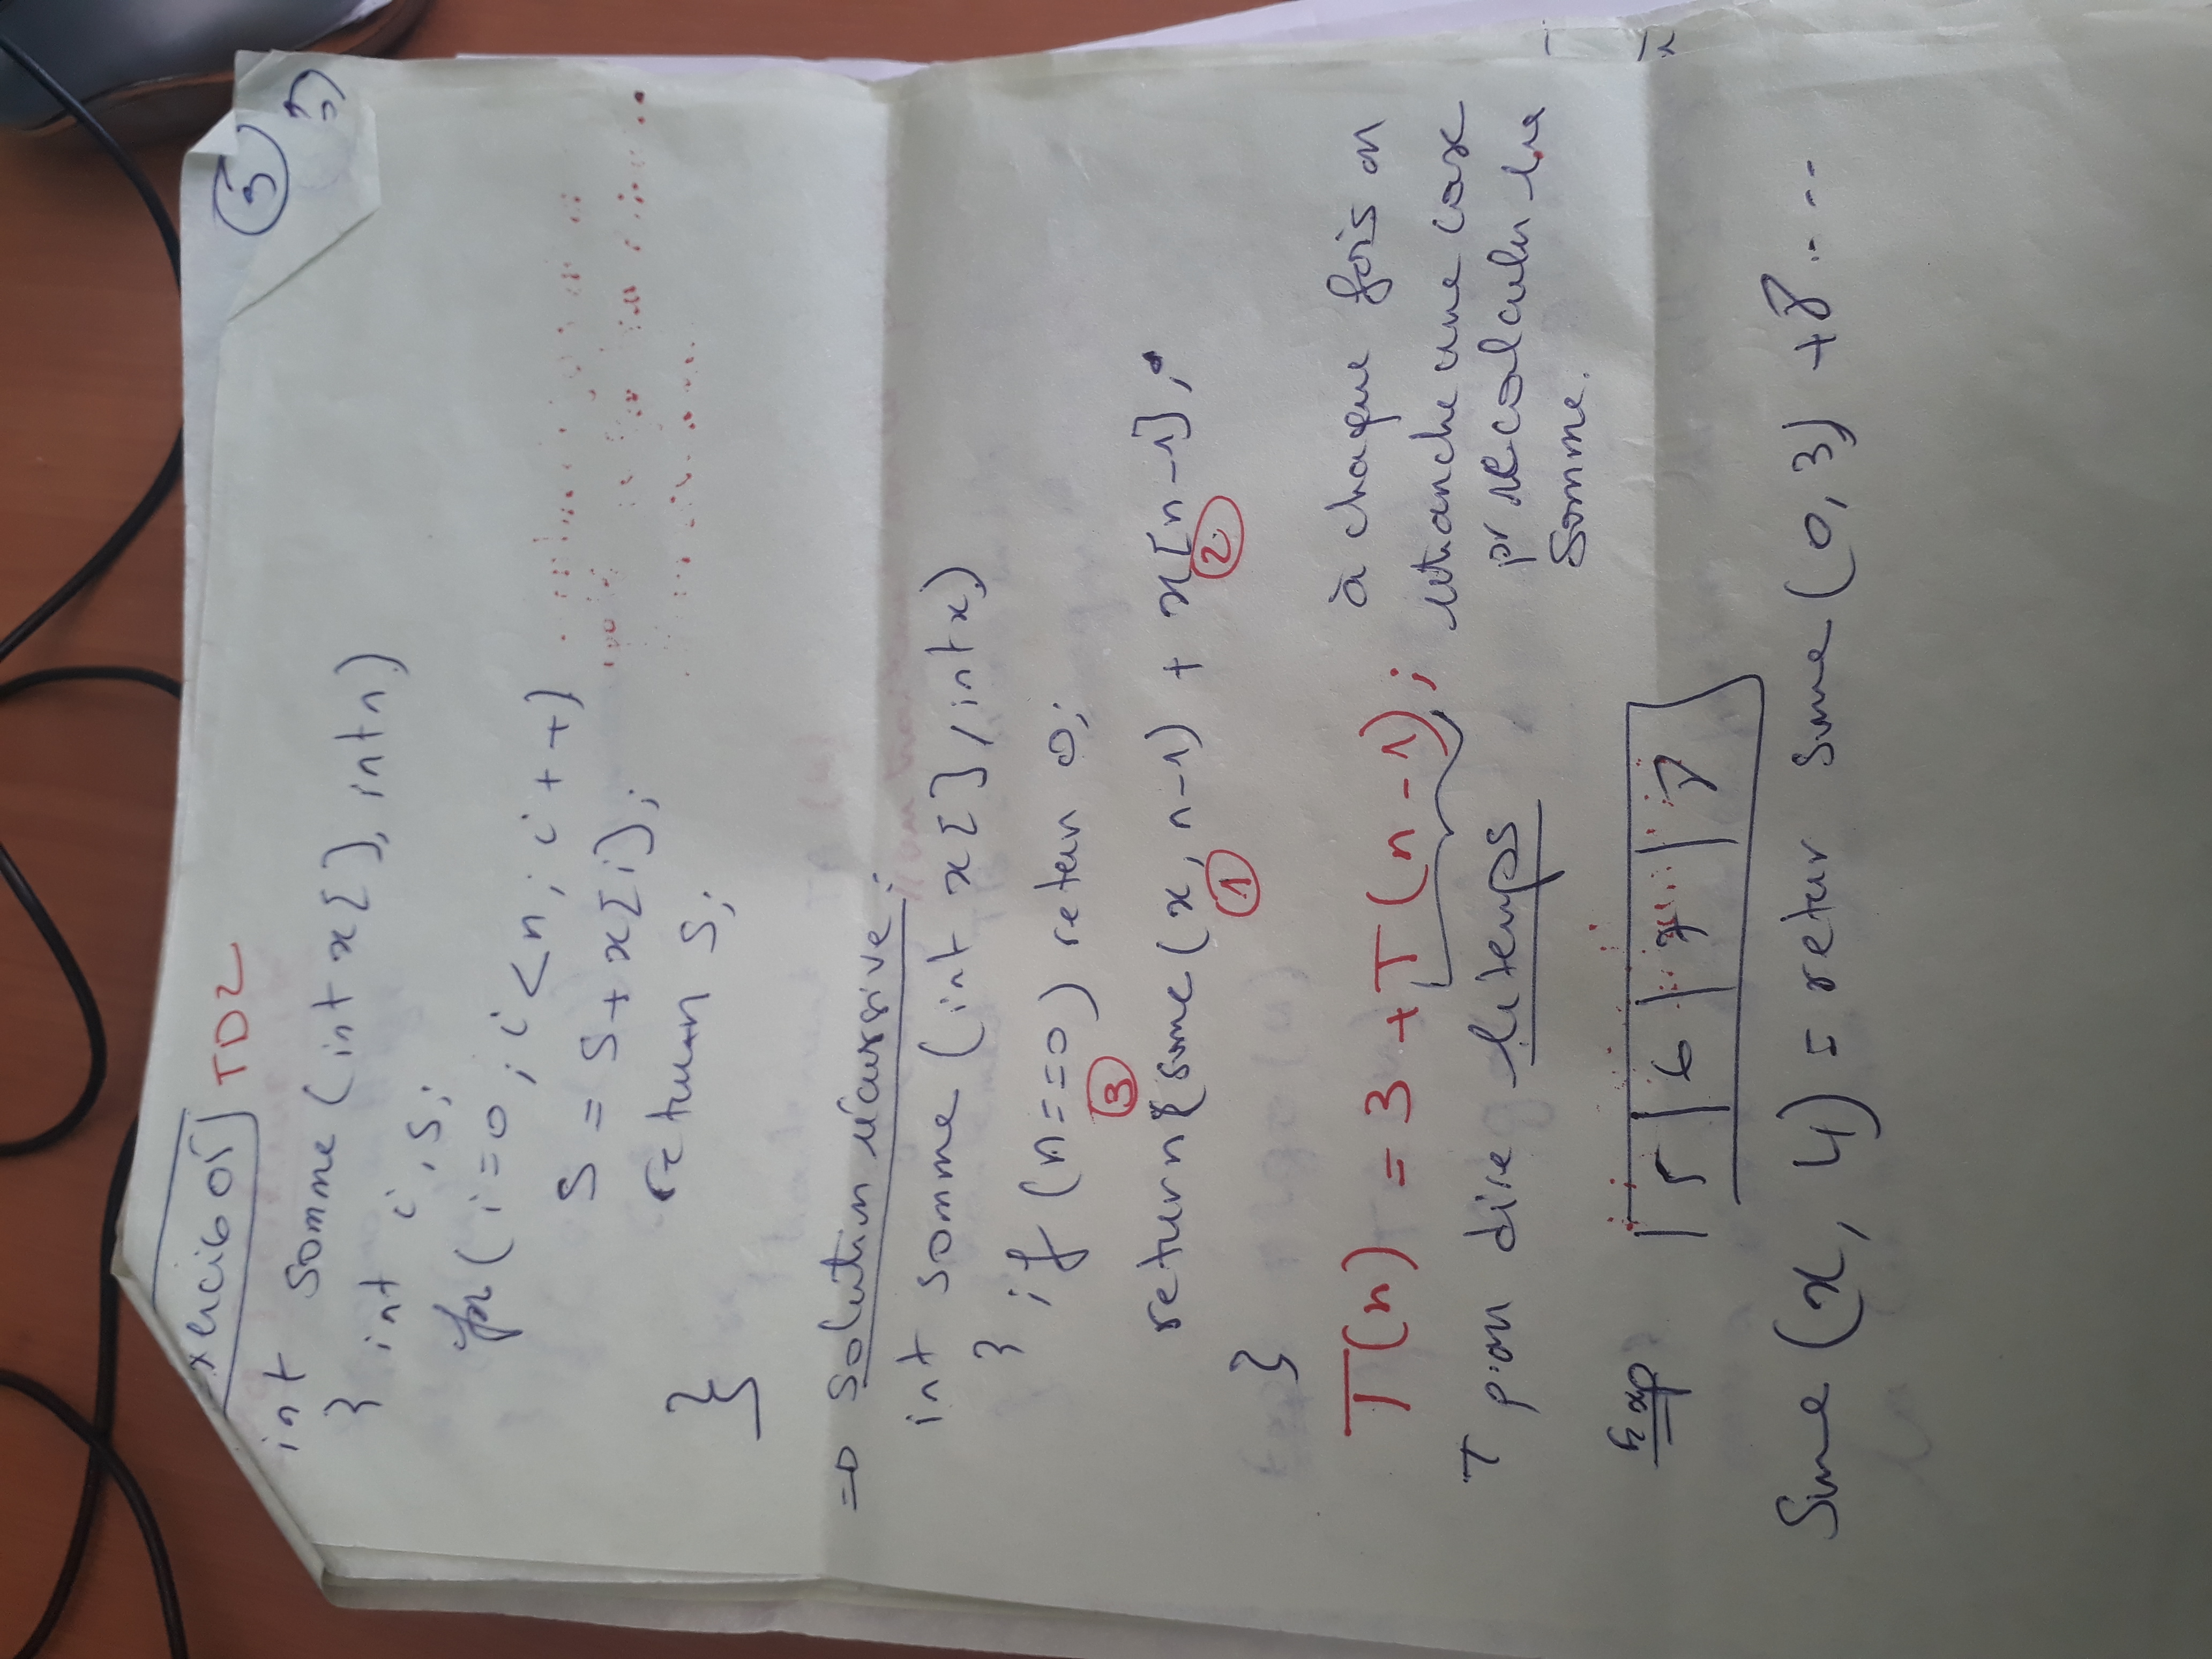 xercice 05 TD2
5
int somme (int x[], int n)
{ int i, s;
for (i=0; i<n; i++)
s = s + x[i];
return s;
}
=> Solution récursive :
int somme (int x[], int x)
{ if (n==0) retern 0;
3
return some (x, n-1) + x[n-1];
1 2
}
T(n) = 3 + T(n-1);
à chaque fois on
retranche une case
pr recalculer la
somme.
T pour dire le temps
Exp
5 6 7 8
Sme (x, 4) = retur sme (0,3) + 8....